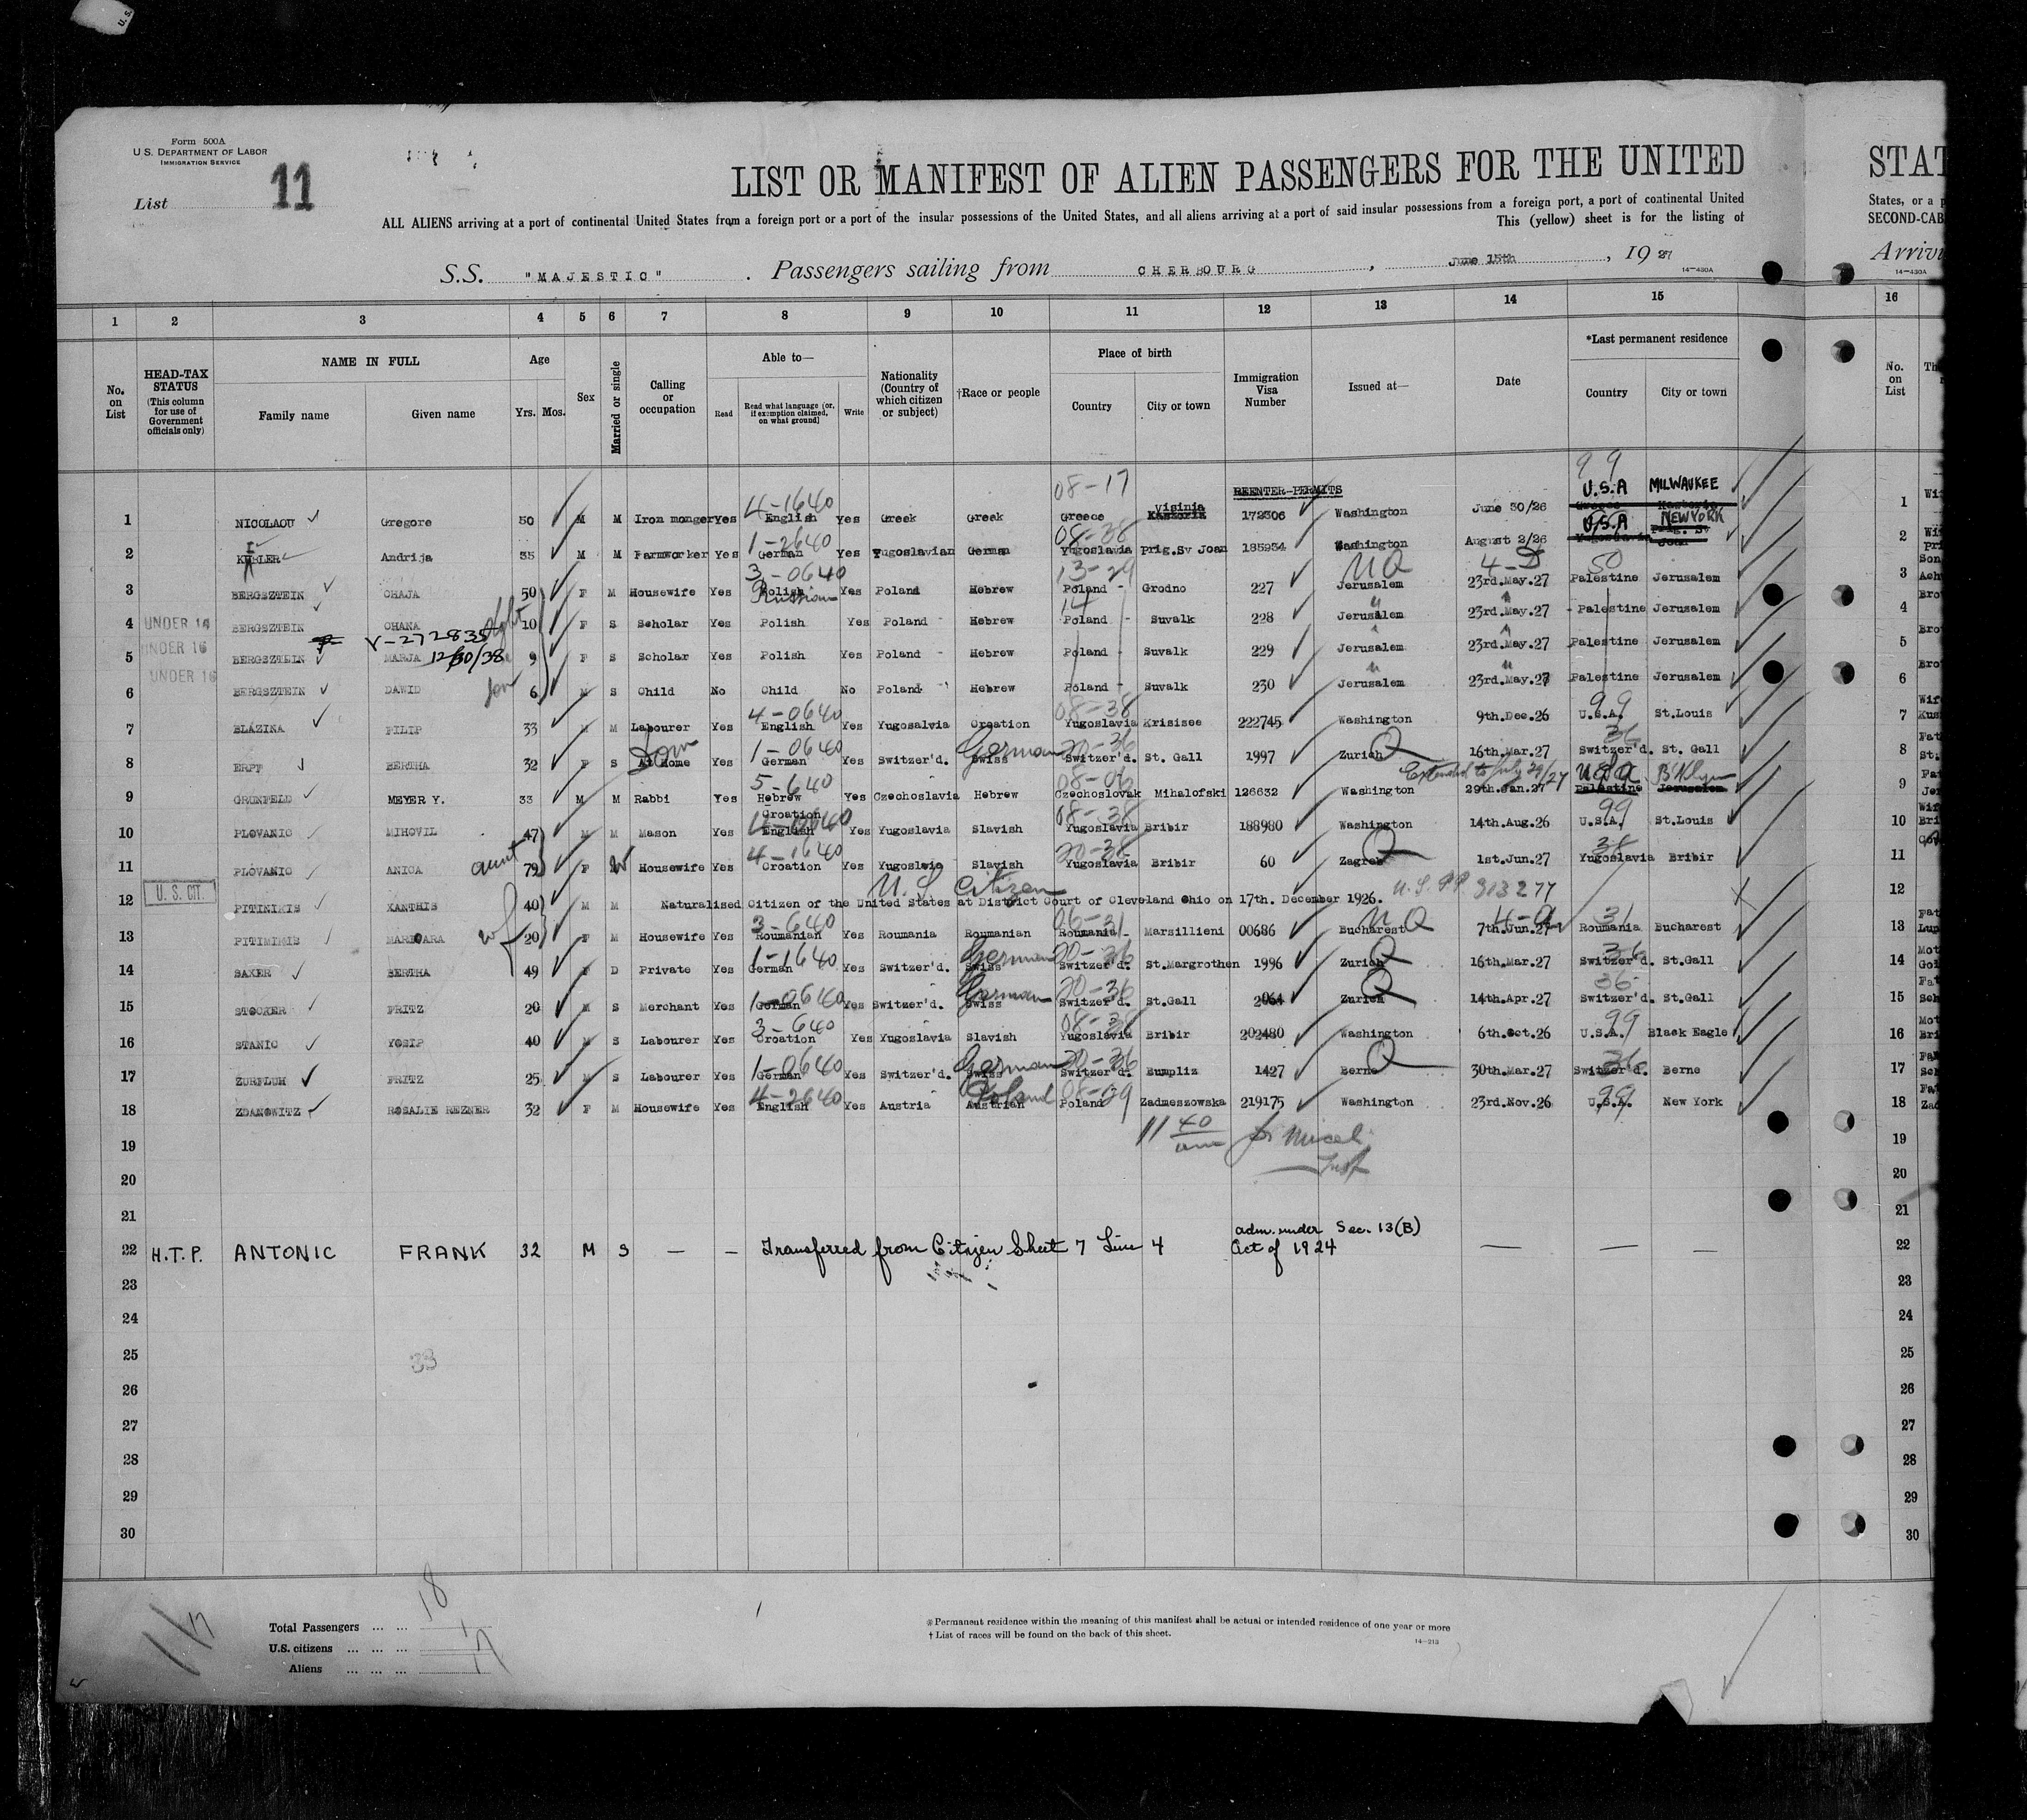 Form 500A
U. S. DEPARTMENT OF LABOR
IMMIGRATION SERVICE
List 11
LIST OR MANIFEST OF ALIEN PASSENGERS FOR THE UNITED
STAT
ALL ALIENS arriving at a port of continental United States from a foreign port or a port of the insular possessions of the United States, and all aliens arriving at a port of said insular possessions from a foreign port, a port of continental United
States, or a p
This (yellow) sheet is for the listing of
SECOND-CAB
S.S. "MAJESTIC" . Passengers sailing from CHERBOURG , June 15th , 19 27
Arrivi
14—430A 14—430A
1 2 3 4 5 6 7 8 9 10 11 12 13 14 15 16
No. on List HEAD-TAX STATUS (This column for use of Government officials only) NAME IN FULL Family name Given name Age Yrs. Mos. Sex Married or single Calling or occupation Able to— Read Read what language (or, if exemption claimed, on what ground) Write Nationality (Country of which citizen or subject) †Race or people Place of birth Country City or town Immigration Visa Number Issued at— Date *Last permanent residence Country City or town No. on List
REENTER-PERMITS
08-17 99
U.S.A MILWAUKEE
4-1640 Visinia
1 NICOLAOU Gregore 50 M M Iron monger Yes English Yes Greek Greek Greece Kastoria 172306 Washington June 30/26 1
1-2640 08-38 U.S.A NEW YORK
2 KUBLER Andrija 35 M M Farmworker Yes German Yes Yugoslavian German Yugoslavia Prig.Sv Joan 185934 Washington August 2/26 Yugoslavia Prig. Sv Joan 2
3-0640 13-29 NQ 4-D 50
3 BERGSZTEIN CHAJA 50 F M Housewife Yes Polish Russian Yes Poland Hebrew Poland - Grodno 227 Jerusalem 23rd.May.27 Palestine Jerusalem 3
4 UNDER 14 BERGSZTEIN CHANA 10 F S Scholar Yes Polish Yes Poland Hebrew Poland - Suvalk 228 Jerusalem 23rd.May.27 Palestine Jerusalem 4
V-272835
UNDER 16
5 BERGSZTEIN MARJA 12/30/38 9 F S Scholar Yes Polish Yes Poland Hebrew Poland - Suvalk 229 Jerusalem 23rd.May.27 Palestine Jerusalem 5
UNDER 16
6 BERGSZTEIN DAWID son 6 M S Child No Child No Poland Hebrew Poland - Suvalk 230 Jerusalem 23rd.May.27 Palestine Jerusalem 6
4-0640 08-38 99
7 BLAZINA FILIP 33 M M Labourer Yes English Yes Yugosalvia Croation Yugoslavia Krisisee 222745 Washington 9th.Dec.26 U.S.A. St.Louis 7
Dom 1-0640 German 20-36 Q 36
8 ERPF BERTHA 32 F S At Home Yes German Yes Switzer'd. Swiss Switzer'd. St. Gall 1997 Zurich 16th.Mar.27 Switzer'd. St. Gall 8
5-640 08-04 Extended to July 29/27 USA B'klyn
9 GRUNFELD MEYER Y. 33 M M Rabbi Yes Hebrew Yes Czechoslavia Hebrew Czechoslovak Mihalofski 126632 Washington 29th.Jan.27 Palestine Jerusalem 9
Croation 08-38 99
10 PLOVANIC MIHOVIL 47 M M Mason Yes English Yes Yugoslavia Slavish Yugoslavia Bribir 188980 Washington 14th.Aug.26 U.S.A. St.Louis 10
4-1640 20-38 Q 38
11 PLOVANIC ANICA aunt 79 F W Housewife Yes Croation Yes Yugoslavia Slavish Yugoslavia Bribir 60 Zagreb 1st.Jun.27 Yugoslavia Bribir 11
U. S. CIT. U. S. Citizen U. S. PP. 313277
12 PITINIMIS XANTHIS 40 M M Naturalised Citizen of the United States at District Court of Cleveland Ohio on 17th. December 1926. 12
3-640 06-31 NQ 31
13 PITIMIMIS MARIOARA wf 20 F M Housewife Yes Roumanian Yes Roumania Roumanian Roumania Marsillieni 00686 Bucharest 7th.Jun.27 Roumania Bucharest 13
1-1640 German 20-36 Q 36
14 SAXER BERTHA 49 F D Private Yes German Yes Switzer'd. Swiss Switzer'd. St.Margrothen 1996 Zurich 16th.Mar.27 Switzer'd. St.Gall 14
1-0640 German 20-36 Q 36
15 STOCKER FRITZ 20 M S Merchant Yes German Yes Switzer'd. Swiss Switzer'd. St.Gall 2064 Zurich 14th.Apr.27 Switzer'd. St.Gall 15
3-640 08-38 99
16 STANIC YOSIP 40 M S Labourer Yes Croation Yes Yugoslavia Slavish Yugoslavia Bribir 202480 Washington 6th.Oct.26 U.S.A. Black Eagle 16
1-0640 German 20-36 Q 36
17 ZURFLUH FRITZ 25 M S Labourer Yes German Yes Switzer'd. Swiss Switzer'd. Bumpliz 1427 Berne 30th.Mar.27 Switzer'd. Berne 17
4-2640 Poland 08-29 99
18 ZDANOWITZ ROSALIE REZNER 32 F M Housewife Yes English Yes Austria Austrian Poland Zadmeszowska 219175 Washington 23rd.Nov.26 U.S.A. New York 18
19 11 40 19
20 20
21 21
adm. under Sec. 13(B)
22 H.T.P. ANTONIC FRANK 32 M S — — Transferred from Citizen Sheet 7 Line 4 Act of 1924 — — — 22
23 23
24 24
25 33 25
26 26
27 27
28 28
29 29
30 30
Total Passengers 18
U.S. citizens 1
Aliens 17
※Permanent residence within the meaning of this manifest shall be actual or intended residence of one year or more
† List of races will be found on the back of this sheet.
14—213